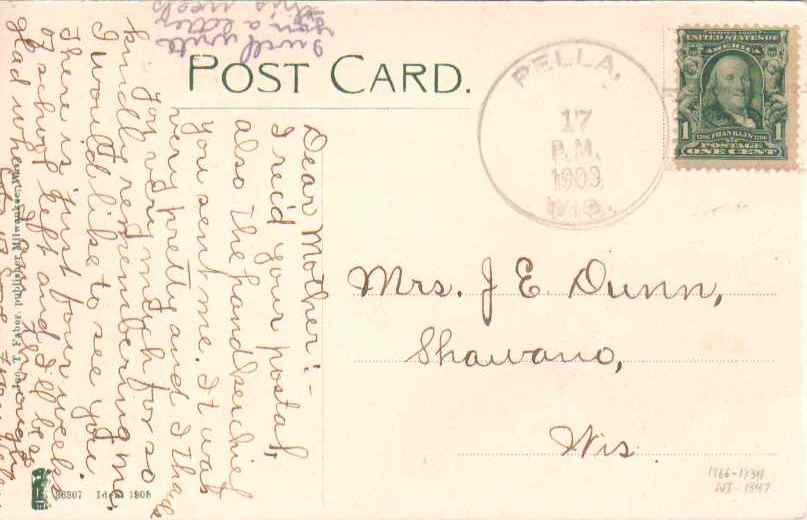 POST CARD.
PELLA,
17
P.M.
1909
WIS.
SERIES 1902
UNITED STATES OF
AMERICA
1 FRANKLIN 1
POSTAGE
ONE CENT
Mrs. J E. Dunn,
Shawano,
Wis.
Dear Mother:-
I rec'd your postal,
also the handkerchief
you sent me. It was
very pretty and I thank
you very much for so
kindly remembering me.
I would like to see you.
There is just four weeks
of school left and I'll be
glad when
I will write
you a letter
this week
Publisher, Milwaukee
1866-1934
WI-1947